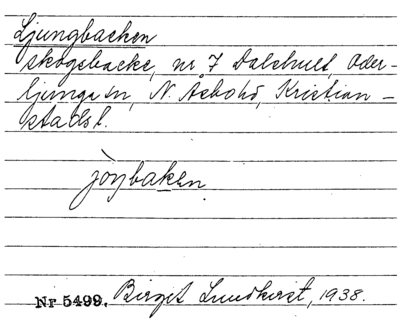 Ljungbacken
skogsbacke, nr 7 Dalshult, Oder-
ljunga sn, N. Åsbo hd, Kristian-
stads l.
joŋbaken
Nr 5499. Birget Lundkvist, 1938.